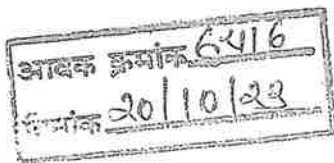 आवक क्रमांक 6416
दिनांक 20/10/23